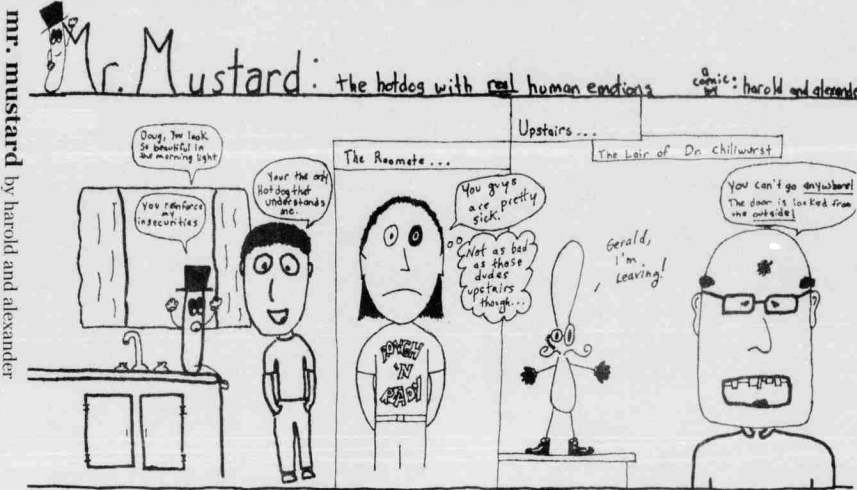 mr. mustard by harold and alexander
Mr. Mustard: the hotdog with real human emotions
a
comic: harold and alexande
by
Doug, You look
so beautiful in
the morning light
You reinforce
my
insecurities
Your the only
Hotdog that
understands
me.
The Roomate...
You guys
are pretty
sick.
Not as bad
as those
dudes
upstairs
though...
ROUGH
'N
READY
Upstairs...
The Lair of Dr. Chillwurst
Gerald,
I'm
Leaving!
You can't go anywhere!
The door is locked from
the outside!